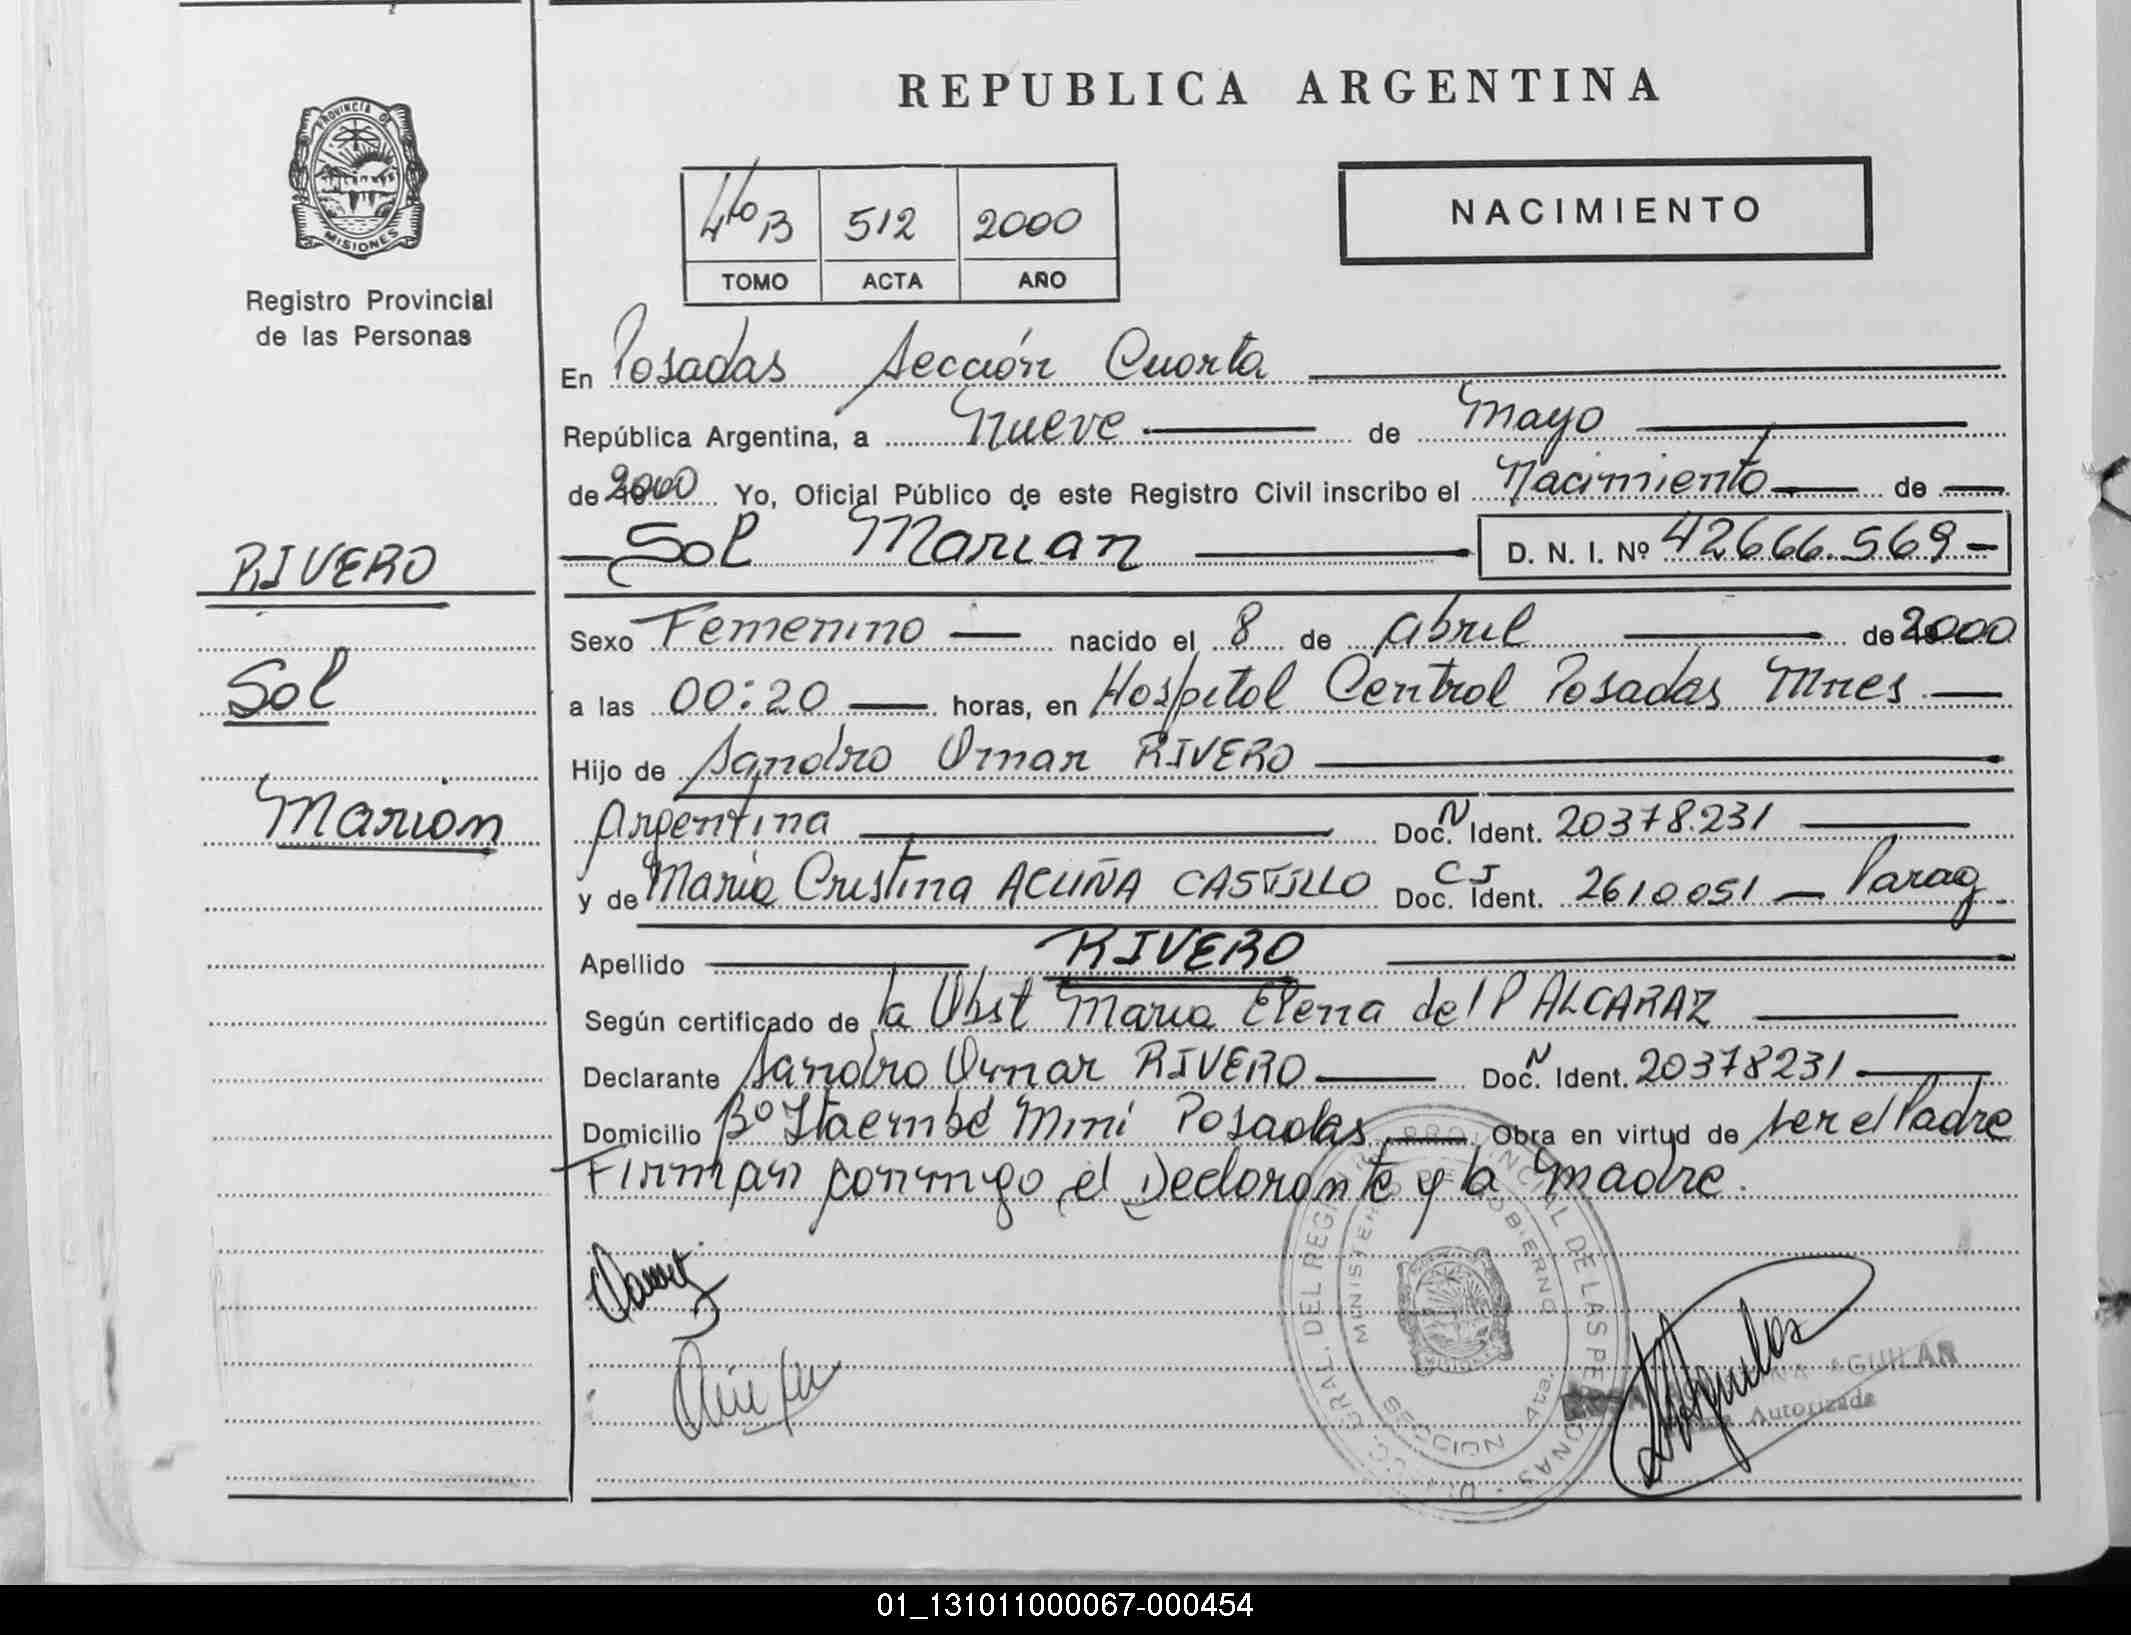 REPUBLICA ARGENTINA
PROVINCIA DE
MISIONES
Registro Provincial
de las Personas
4to B 512 2000
TOMO ACTA AÑO
NACIMIENTO
En Posadas Sección Cuarta
República Argentina, a Nueve de Mayo
de 2000 Yo, Oficial Público de este Registro Civil inscribo el Nacimiento de
Sol Marian D. N. I. Nº 42666.569
RIVERO
Sol
Marian
Sexo Femenino nacido el 8 de abril de 2000
a las 00:20 horas, en Hospital Central Posadas Mnes
Hijo de Sandro Omar RIVERO
Argentina Doc. N Ident. 20378.231
y de María Cristina ACUÑA CASTILLO Doc. CI Ident. 2610051 Parag
Apellido RIVERO
Según certificado de la Obst Maria Elena del P ALCARAZ
Declarante Sandro Omar RIVERO Doc. N Ident. 20378231
Domicilio Bº Itaembé Mini Posadas Obra en virtud de ser el Padre
Firman conmigo el Declarante y la Madre.
GRAL. DEL REGISTRO PROVINCIAL DE LAS PERSONAS
MINISTERIO DE GOBIERNO
SECCION 4ta.
ROSA AGUILAR
Autorizada
01_131011000067-000454